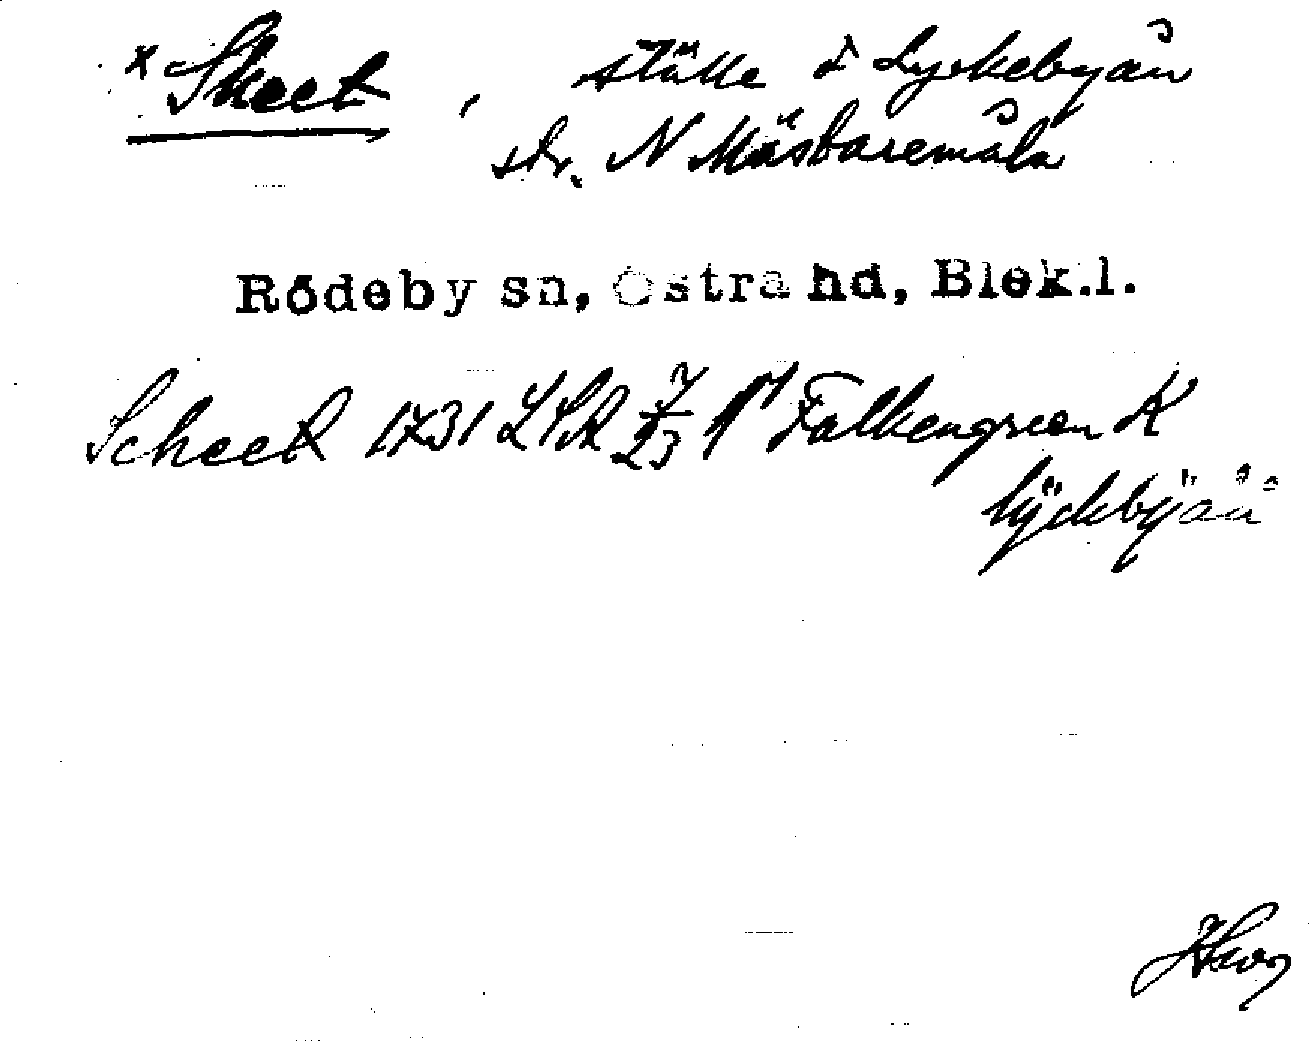 * Skeet, ställe i Lyckebyån
str. N Mäsbaremåla
Rödeby sn, Östra hd, Blek.l.
Scheet 1731 LSA 7/23 Falkengreen K
lÿckbÿån